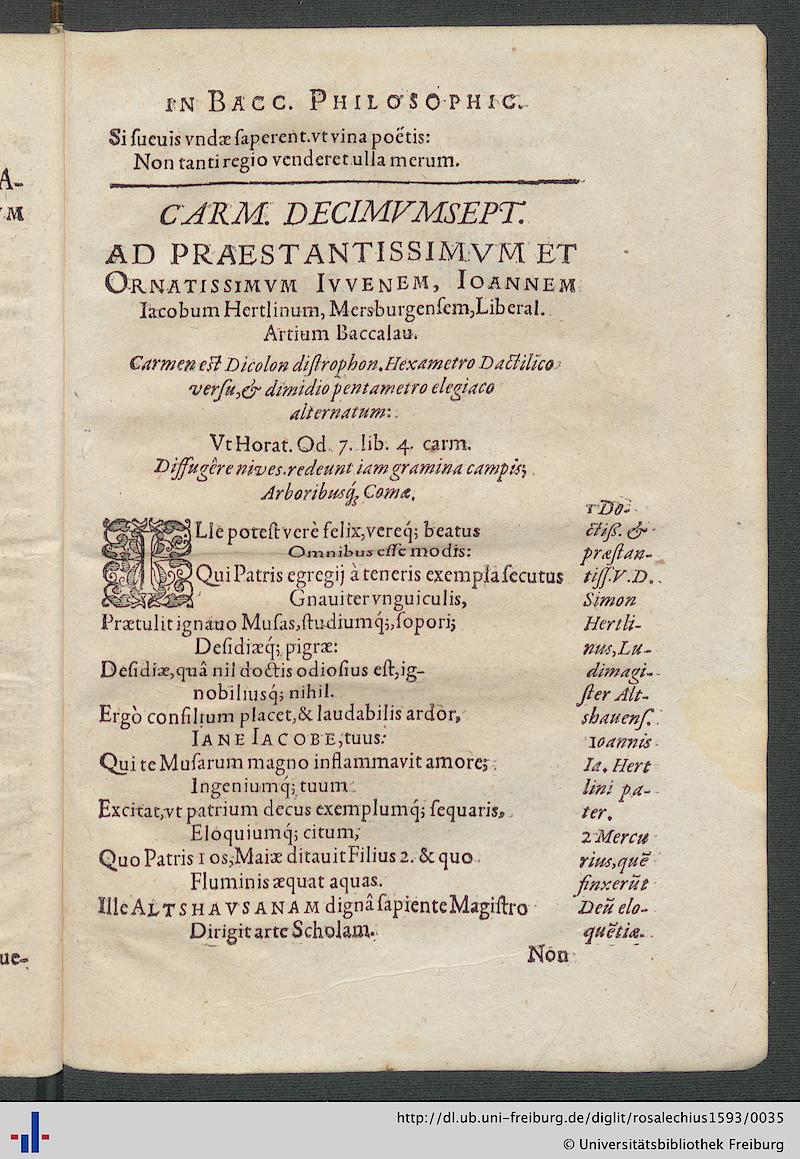 A-
VM
IN BACC. PHILOSOPHIC.
Si sueuis vndæ saperent. vt vina poëtis:
Non tanti regio venderet ulla merum.
CARM. DECIMVMSEPT.
AD PRAESTANTISSIMVM ET
ORNATISSIMVM IVVENEM, IOANNEM
Iacobum Hertlinum, Mersburgensem, Liberal.
Artium Baccalau.
Carmen est Dicolon distrophon. Hexametro Dactilico
versu, & dimidio pentametro elegiaco
alternatum:
Vt Horat. Od. 7. lib. 4. carm.
Diffugêre nives. redeunt iam gramina campis;
Arboribusq́; Comæ.
ILle potest verè felix, vereq́; beatus
Omnibus esse modis:
Qui Patris egregij à teneris exempla secutus
Gnauiter vnguiculis,
Prætulit ignauo Musas, studiumq́;, sopori;
Desidiæq́; pigræ:
Desidiæ, quâ nil doctis odiosius est, ig-
nobiliusq́; nihil.
Ergò consilium placet, & laudabilis ardor,
IANE IACOBE, tuus:
Qui te Musarum magno inflammavit amore;
Ingeniumq́; tuum
Excitat, vt patrium decus exemplumq́; sequaris,
Eloquiumq́; citum,
Quo Patris 1 os, Maiæ ditauit Filius 2. & quo
Fluminis æquat aquas.
Ille ALTSHAVSANAM dignâ sapiente Magistro
Dirigit arte Scholam.
Non
1 Do-
ctiß. &
præstan-
tiss. V. D.
Simon
Hertli-
nus, Lu-
dimagi-
ster Alt-
shausens.
Ioannis
Ia. Hert
lini pa-
ter.
2 Mercu
rius, quē
finxerūt
Deū elo-
quētiæ.
ue-
http://dl.ub.uni-freiburg.de/diglit/rosalechius1593/0035
© Universitätsbibliothek Freiburg